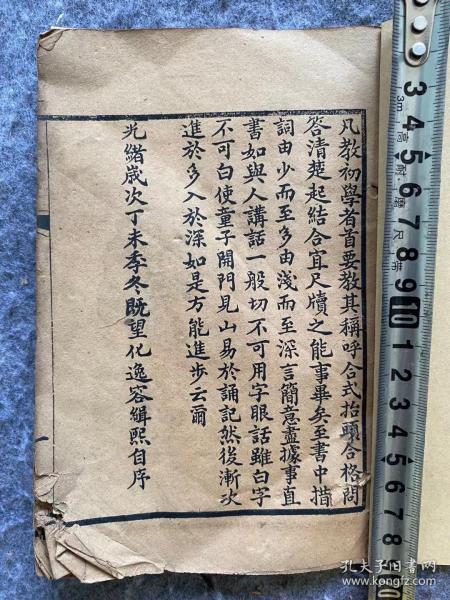 凡教初學者首要教其稱呼合式抬頭合格問
答清楚起結合宜尺牘之能事畢矣至書中措
詞由少而至多由淺而至深言簡意盡據事直
書如與人講話一般切不可用字眼話雖白字
不可白使童子開門見山易於誦記然後漸次
進於多入於深如是方能進步云爾
光緒歲次丁未季冬既望化逸容緝熙自序
3m
高
耐
磨
尺
帶
3
4
5
6
7
8
9
10
1
2
3
4
5
6
7
8
孔夫子旧书网
www.kongfz.com